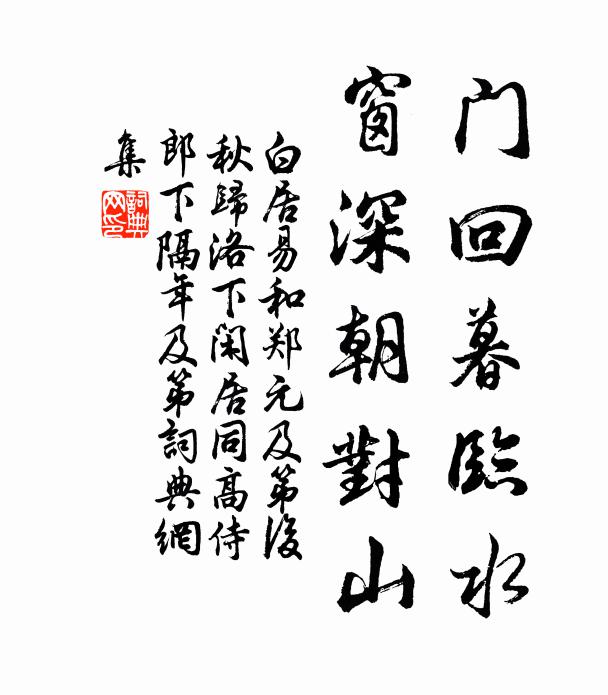 门回暮临水
窗深朝對山
白居易和郑元及第後
秋歸洛下閑居同高侍
郎下隔年及第詞典網
集
詞典
网印